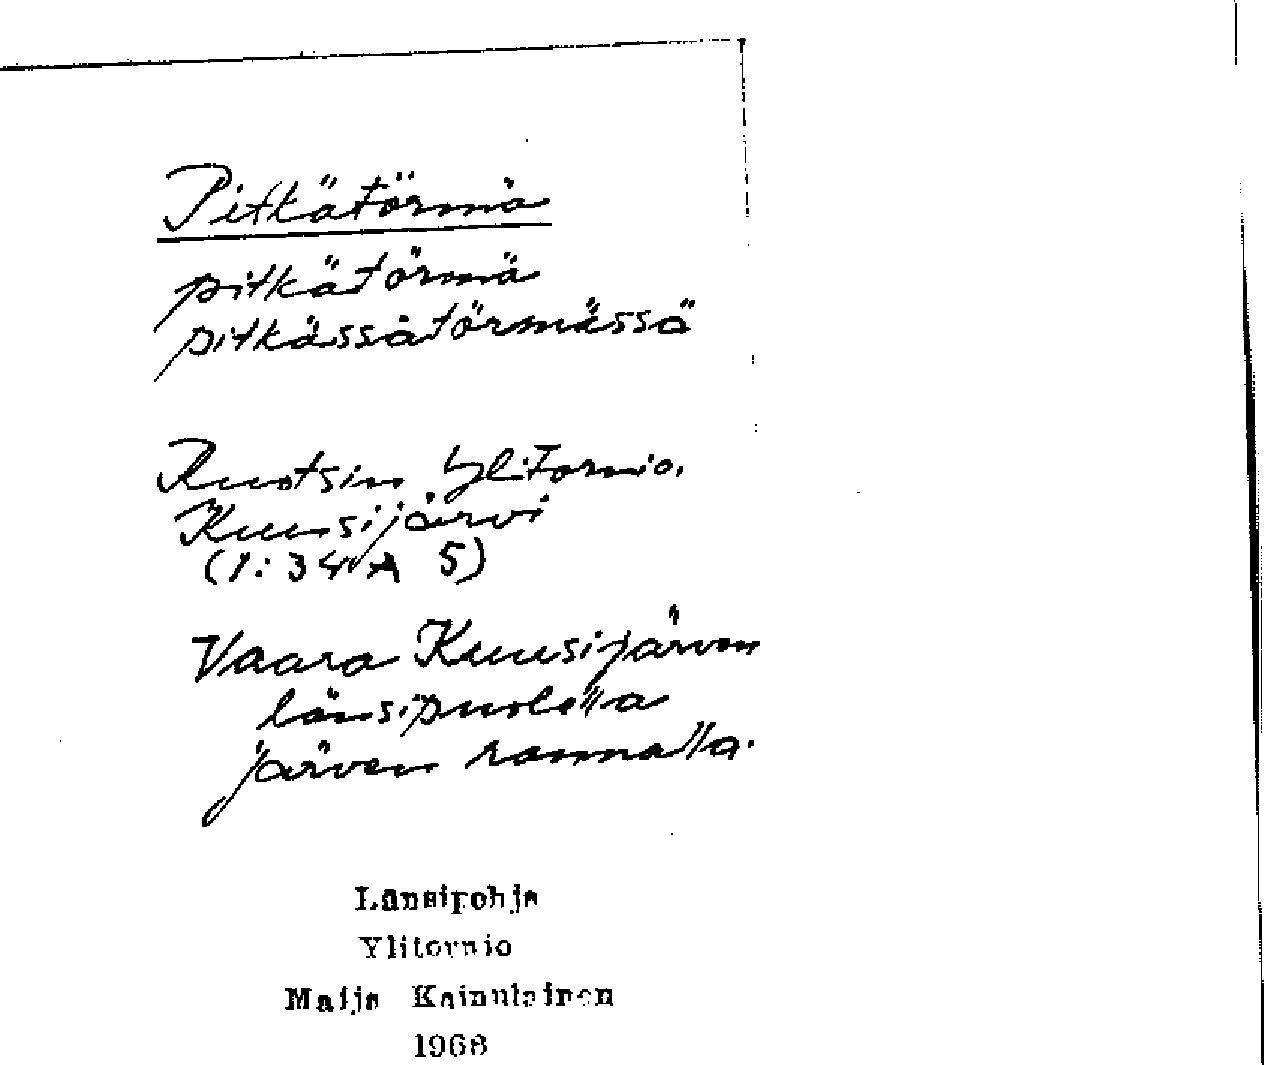 Pitkätörmä
pitkätörmä
pitkässätörmässä
Ruotsin Ylitornio.
Kuusijärvi
(1:34 A 5)
Vaara Kuusijärven
länsipuolella
järven rannalla.
Länsipohja
Ylitornio
Maija Kainulainen
1966